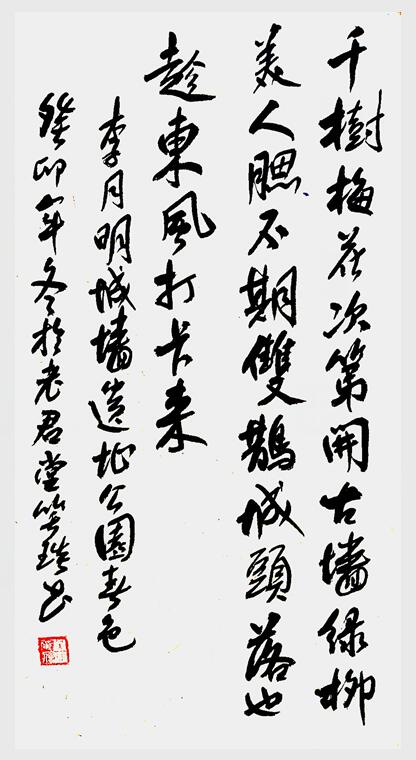 千樹梅花次第開古墻绿柳
美人腮不期雙鵲城頭落也
趁東風打卡来
李月明城墻遺址公園春色
癸卯年冬於老君堂